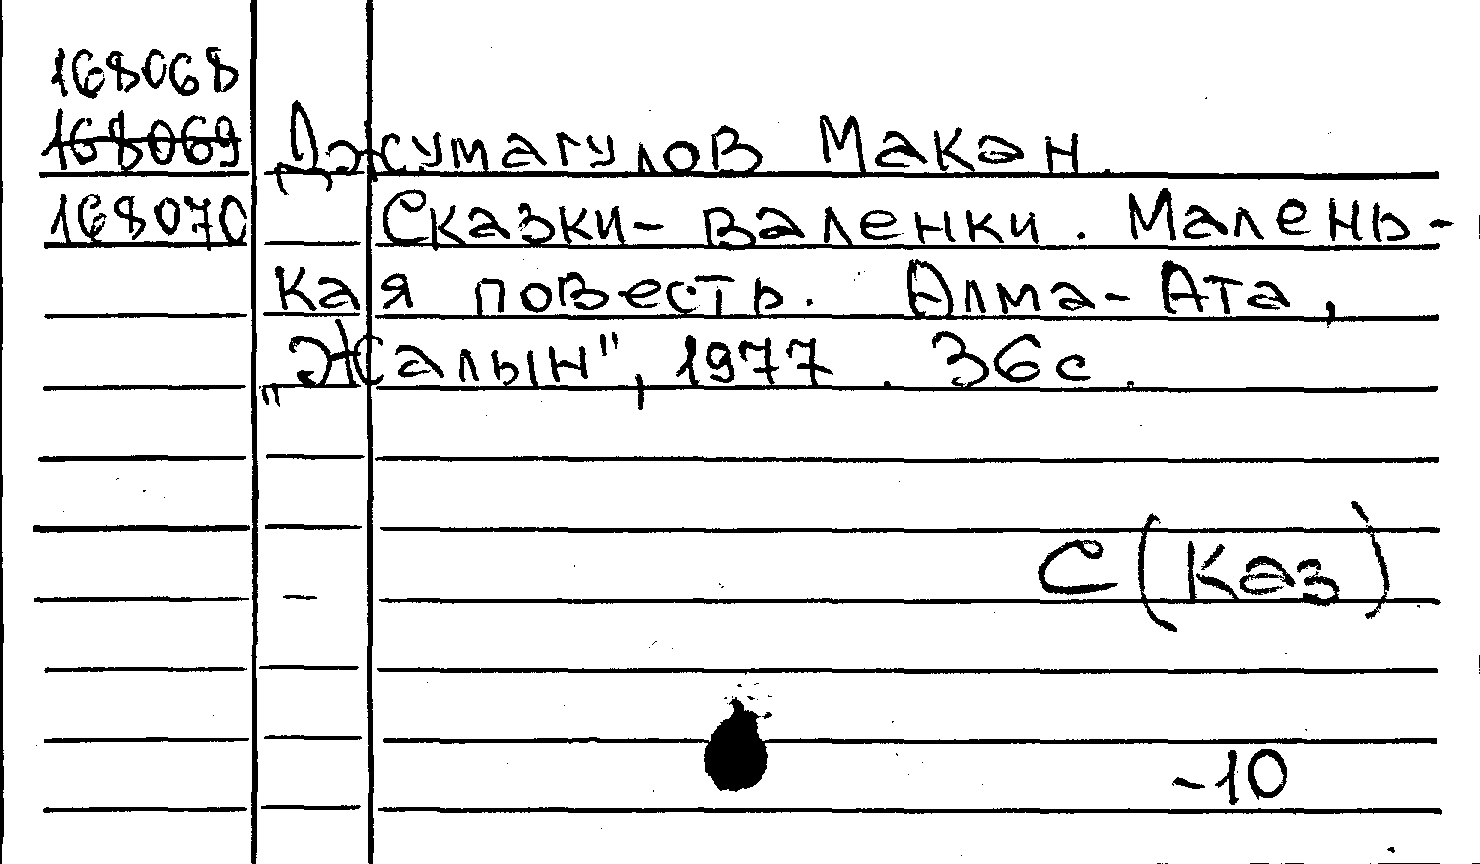 168068
168069 Джумагулов Макан.
168070 Сказки-валенки. Малень-
кая повесть. Алма-Ата,
„Жалын", 1977. 36с.
С(Каз)
-10